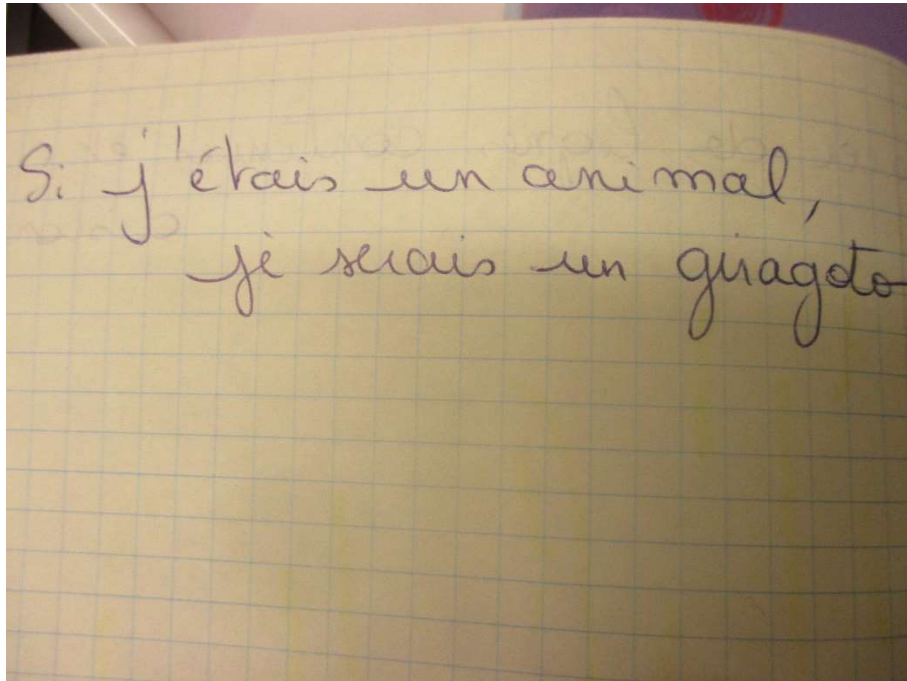 Si j'étais un animal,
je serais un giragoto